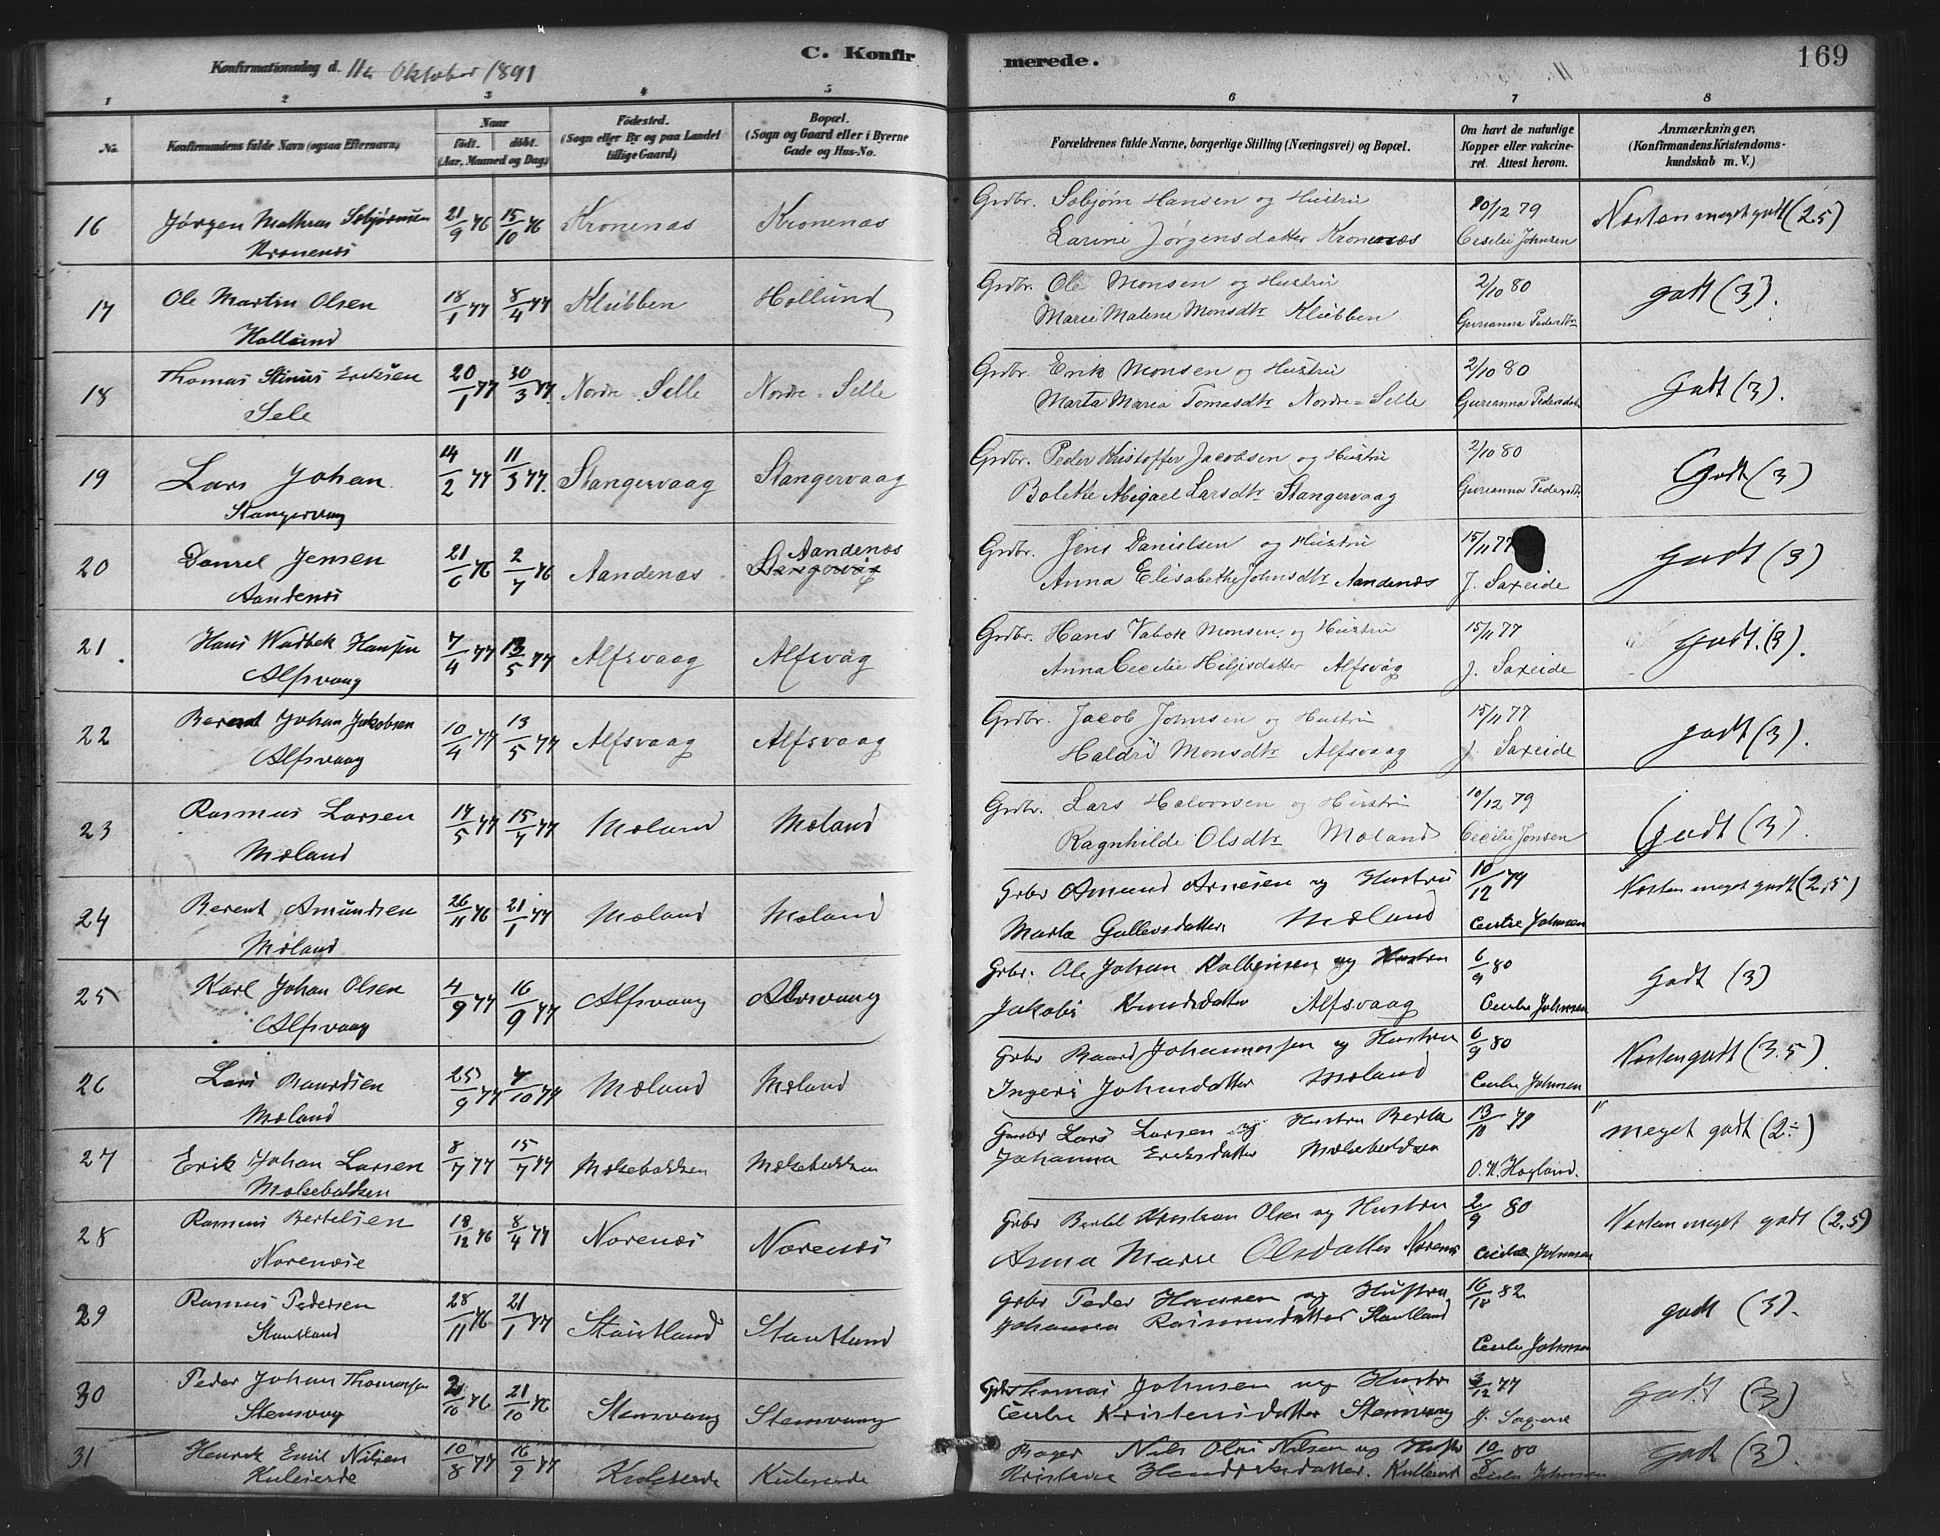 C. Konfirmerede.
169
Konfirmationsdag d. 11te Oktober 1891
1 2 3 4 5 6 7 8
No.
Konfirmandens fulde Navn (ogsaa Efternavn)
Naar
født. døbt.
(Aar, Maaned og Dag)
Fødested.
(Sogn eller By og paa Landet
tillige Gaard)
Bopæl.
(Sogn og Gaard eller i Byerne
Gade og Hus-No.
Forældrenes fulde Navne, borgerlige Stilling (Næringsvei) og Bopæl.
Om havt de naturlige
Kopper eller vakcine-
ret. Attest herom.
Anmærkninger,
(Konfirmandens Kristendoms-
kundskab m. V.)
16 Jørgen Mathias Sebjørnsen 21/9 76 15/10 76 Kronenæs Kronenæs Grdbr. Sebjørn Hansen og Hustru 10/12 79 Næsten meget godt (2.5)
Kronenæs Larine Jørgensdatter Kronenæs Cesilie Johnsen
17 Ole Martin Olsen 18/1 77 8/4 77 Klubben Hollund Grdbr. Ole Monsen og Hustru 2/10 80 godt (3).
Hollund Marie Malene Monsdtr Klubben Gurianna Pedersdtr
18 Thomas Stinus Eriksen 20/1 77 30/3 77. Nordre-Selle Nordre-Selle Grdbr. Erik Monsen og Hustru 2/10 80 Godt (3).
Sele Marta Maria Tomasdtr Nordre-Selle Gurianna Pedersdatr
19 Lars Johan 14/2 77 11/3 77. Stangervaag Stangervaag Grdbr. Peder Kristoffer Jacobsen og Hustru 2/10 80 Godt (3)
Stangervaag Bolette Abigael Larsdtr Stangervaag Gurianna Pedersdtr
20 Daniel Jensen 21/6 76 2/7 76 Aandenæs Aandenæs Grdbr. Jens Danielsen og Hustru 15/11 77 Godt (3)
Aandenæs Anna Elisabethe Johnsdtr Aandenæs J. Saxeide
21 Hans Wadbek Hansen 7/4 77 13/5 77 Alfsvaag Alfsvåg Grdbr. Hans Vabek Monsen og Hustru 15/11 77 godt. (3).
Alfsvaag Anna Cecilie Helgisdatter Alfsvåg J. Saxeide
22 Berent Johan Jakobsen 10/4 77 13/5 77 Alfsvaag Alfsvaag Grdbr. Jacob Johnsen og Hustru 15/11 77 godt (3).
Alfsvaag Haldri Monsdtr Alfsvaag J. Saxeide
23 Rasmus Larsen 14/5 77 15/7 77 Mæland Mæland Grdbr. Lars Halvorsen og Hustru 10/12 79 Godt (3).
Mæland Ragnhilde Olsdtr Mæland Cecilie Jonsen
24 Berent Amundsen 26/11 76 21/1 77 Mæland Mæland Grbr Amund Arnesen og Hustru 10/12 79 Næsten meget godt (2.5)
Mæland Marta Gullevsdatter Mæland Cecilie Johnsen
25 Karl Johan Olsen 4/9 77 16/9 77 Alfsvaag Alfsvaag Grbr. Ole Johan Kolbensen og Hustru 6/9 80 Godt (3)
Alfsvaag Jakobi Knudsdatter Alfsvaag Cecilie Johnsen
26 Lars Baardsen 25/9 77 7/10 77 Mæland Mæland Grbr Baard Johannessen og Hustru 6/9 80 Næsten godt (3.5).
Mæland Ingeri Johnsdatter Mæland Cecilie Johnsen
27 Erik Johan Larsen 8/7 77 15/7 77 Mælsebakken Mælsebakken Grbr Lars Larsen og Hustru Berta 13/10 79 meget godt (2÷)
Mælsebakken Johanna Eriksdatter Mælsebakken O. N. Høgland.
28 Rasmus Bertelsen 18/12 76 8/4 77 Norenæs Norenæs Grbr Bertel Kristian Olsen og Hustru 2/9 80 Næsten meget godt (2.5)
Norenæs Anna Marie Olsdatter Norenæs Cecilie Johnsen
29 Rasmus Pedersen 28/11 76 21/1 77 Stautland Stautland Grbr Peder Hansen og Hustru 16/10 82 godt (3).
Stautland Johanna Rasmusdatter Stautland Cecilie Johnsen
30 Peder Johan Thomassen 2/10 76 21/10 76 Stensvaag Stensvaag Grbr Thomas Johnsen og Hustru 3/12 77 Godt (3)
Stensvag Cecilie Kristensdatter Stensvaag J.
31 Henrik Emil Nilsen 10/8 77 16/9 77 Kuleseide Kuleseide Bager Nils Olai Nilsen og Hustr 10/8 80 godt (3).
Kuleseide Kristine Hendriksdatter. Cecilie Johnsen